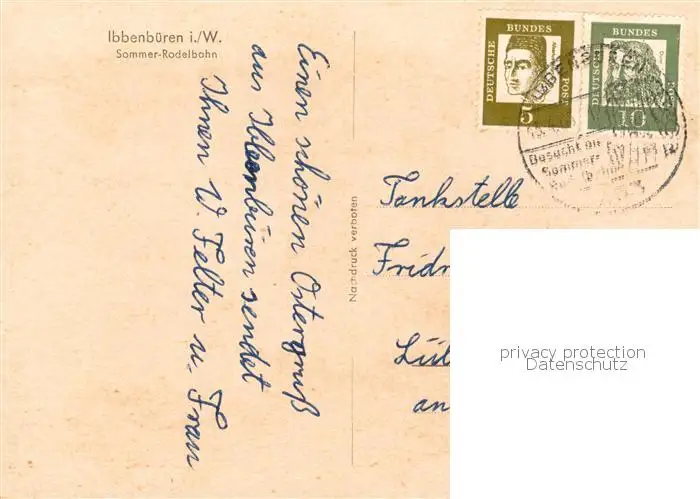 Ibbenbüren i./W.
Sommer-Rodelbahn
Einen schönen Ostergruß
aus Ibbenbüren sendet
Ihnen W. Felter u. Frau
Nachdruck verboten
DEUTSCHE BUNDES POST
5
DEUTSCHE BUNDES POST
10
Besucht die
Sommer-
Tankstelle
Fridr
Lül
an
privacy protection
Datenschutz